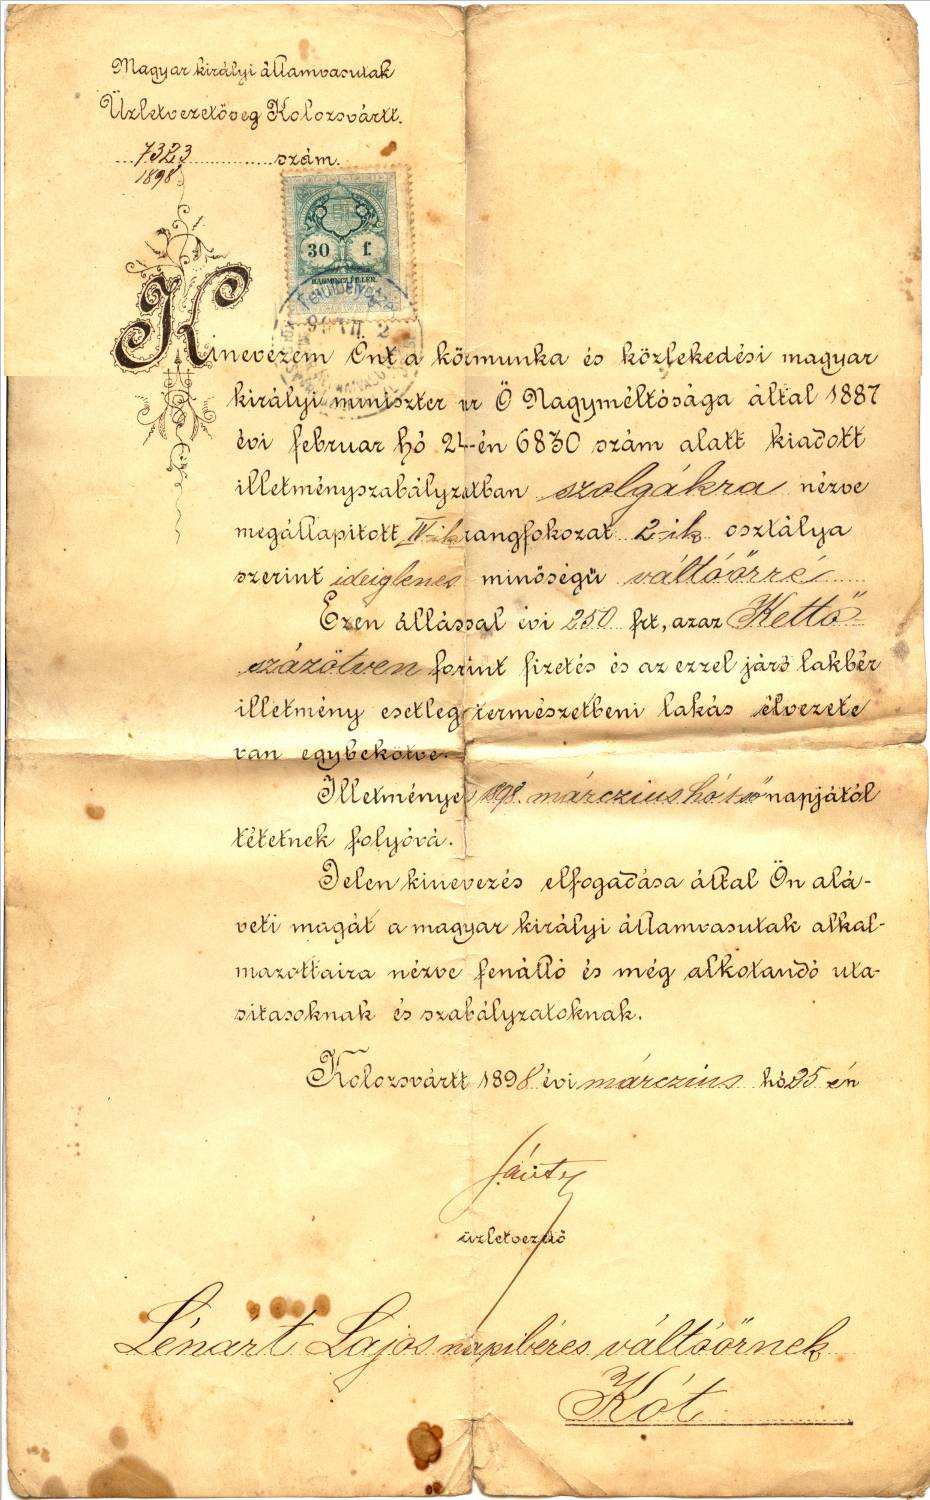 Magyar királyi államvasutak
Üzletvezetöség Kolozsvártt.
7323 szám.
1898
30 f.
HARMINCZ FILLÉR
Felülbélyegezve
Kinevezem Önt a közmunka és közlekedési magyar
királyi miniszter ur Ö Nagyméltósága által 1887
évi februar hó 24-én 6830 szám alatt kiadott
illetményszabályzatban szolgákra nézve
megállapitott IV-ik rangfokozat 2-ik osztálya
szerint ideiglenes minöségü váltóörré
Ezen állással évi 250 frt, azaz Kettö
százötven forint fizetés és az ezzel járó lakbér
illetmény esetleg természetbeni lakás élvezete
van egybekötve.
Illetményei 1898. márczius hó 1sö napjától
tétetnek folyóvá.
Jelen kinevezés elfogadása által Ön alá-
veti magát a magyar királyi államvasutak alkal-
mazottaira nézve fenálló és még alkotandó uta-
sitasoknak és szabályzatoknak.
Kolozsvártt 1898 évi márczius hó 25 én
üzletvezetö
Lénárt Lajos napibéres váltóörnek
Kót